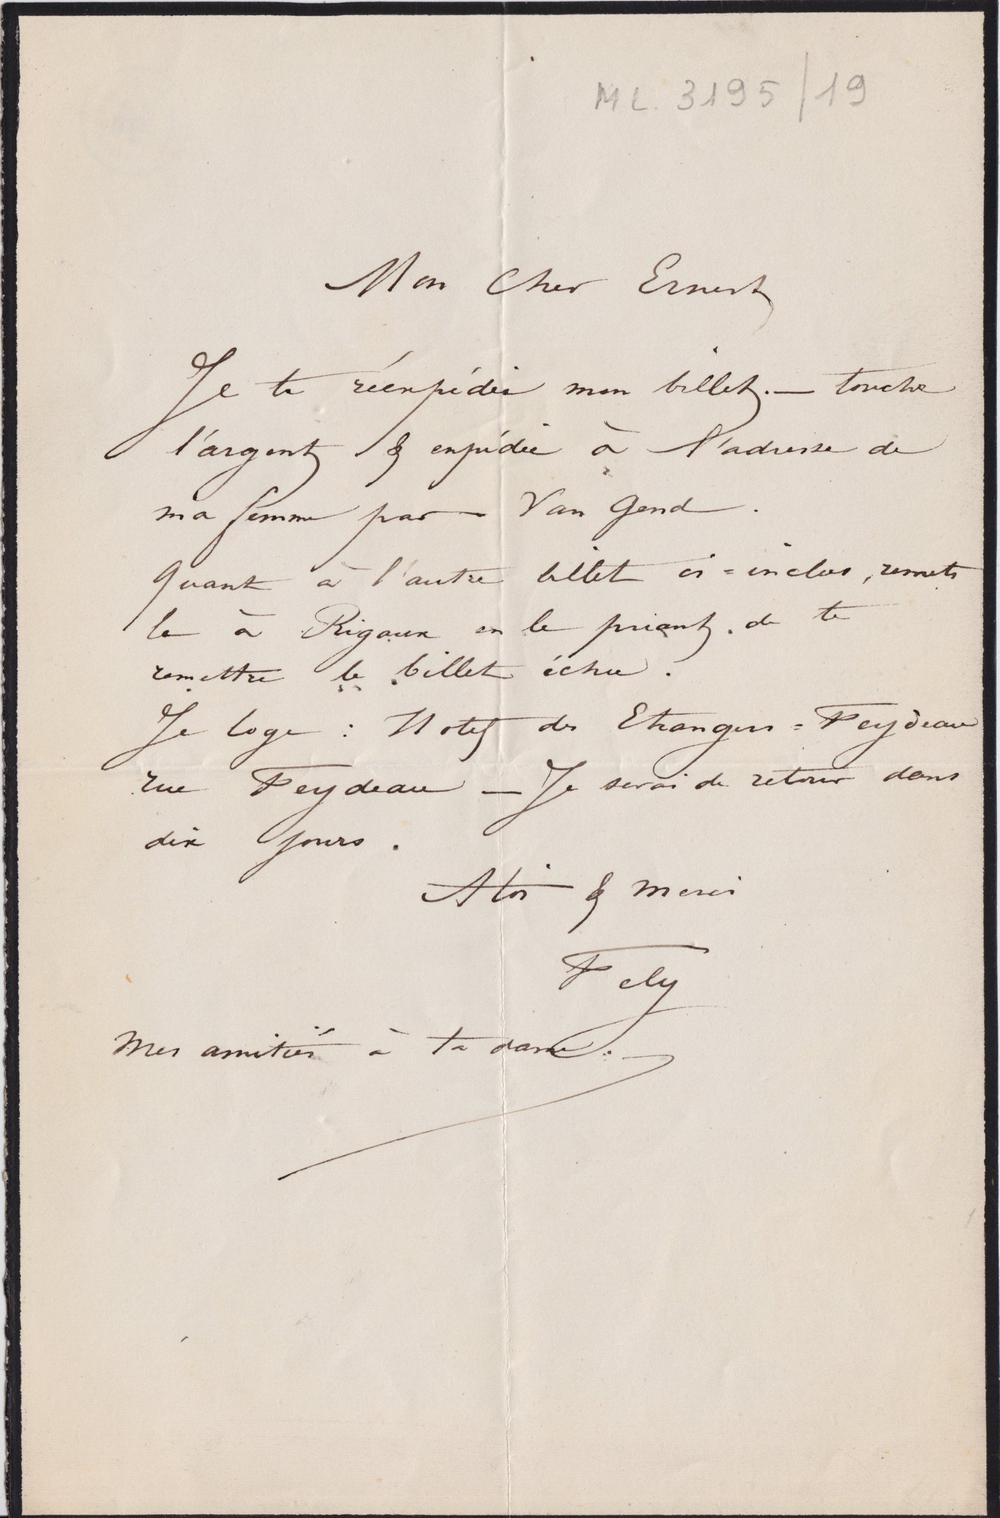 ML. 3195/19
Mon Cher Ernest
Je te réexpédie mon billet. — touche
l'argent & expédie à l'adresse de
ma femme par — Van Gend.
Quant à l'autre billet ci=inclus, remets
le à Rigaux en le priant de te
remettre le billet échu.
Je loge : Hotel des Etrangers = Feydeau
rue Feydeau — Je serai de retour dans
dix jours.
A toi & merci
Fely
Mes amitiés à ta dame.